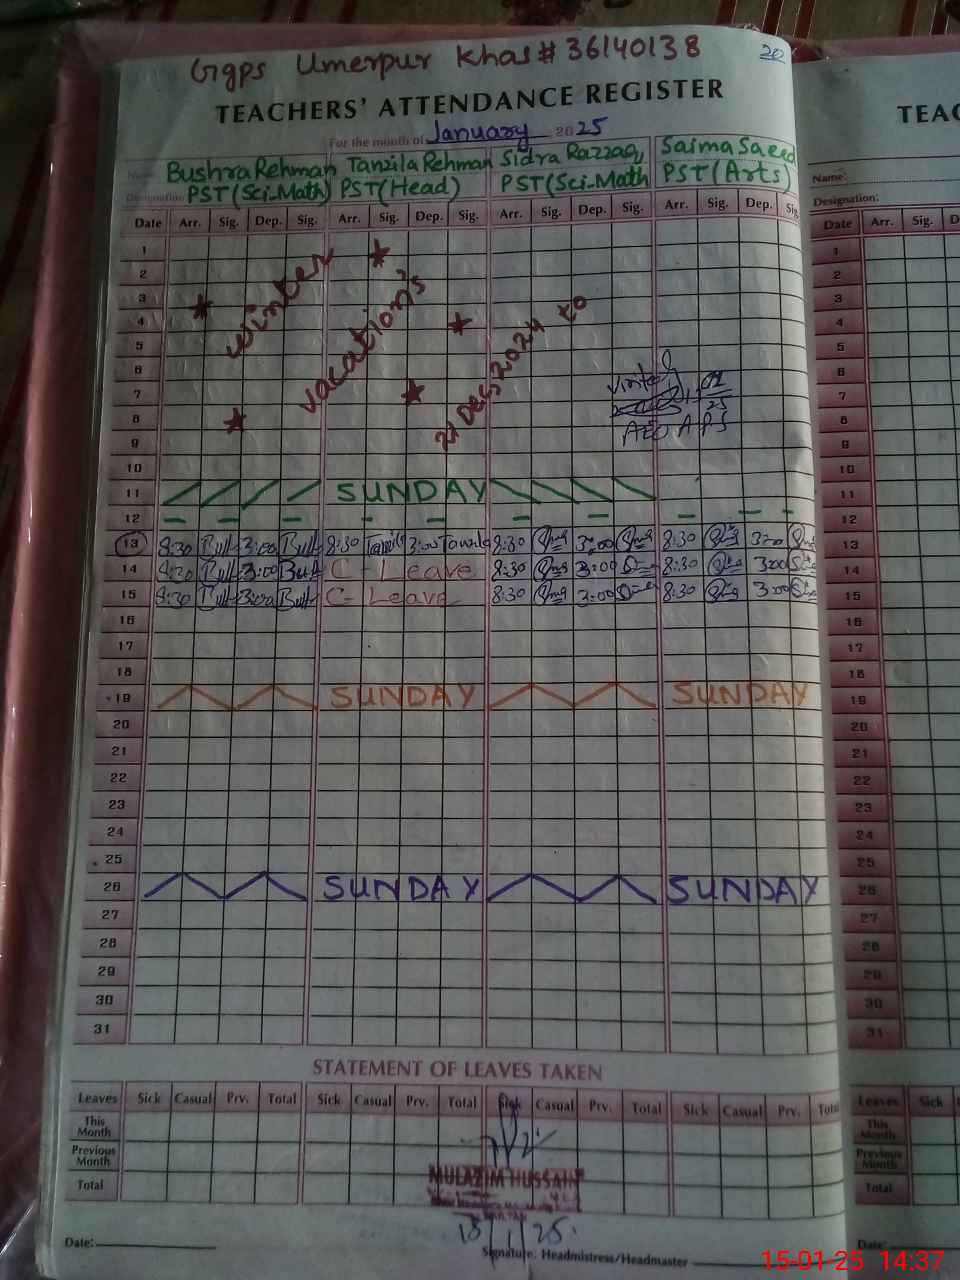 Ggps Umerpur Khas # 36140138
20
TEACHERS' ATTENDANCE REGISTER
For the month of January 2025
Name: Bushra Rehman Tanzila Rehman Sidra Razzaq Saima Saeed
Designation: PST (Sci-Math) PST (Head) PST (Sci-Math PST (Arts)
Date Arr. Sig. Dep. Sig. Arr. Sig. Dep. Sig. Arr. Sig. Dep. Sig. Arr. Sig. Dep. Sig
1
2
3
4
5
6
7
8
9
10
winter
vacation's
21 Dec, 2024 to
AEO
11 SUNDAY
12
13 8:30 3:00 8:30 3:00 8:30 3:00 8:30 3:00
14 8:30 3:00 C - Leave 8:30 3:00 8:30 3:00
15 8:30 3:00 C - Leave 8:30 3:00 8:30 3:00
16
17
18
19 SUNDAY SUNDAY
20
21
22
23
24
25
26 SUNDAY SUNDAY
27
28
29
30
31
STATEMENT OF LEAVES TAKEN
Leaves Sick Casual Prv. Total Sick Casual Prv. Total Sick Casual Prv. Total Sick Casual Prv. Total
This Month
Previous Month
Total
MULAZIM HUSSAIN
Date:
Signature: Headmistress/Headmaster
TEAC
Name:
Designation:
Date Arr. Sig. D
1
2
3
4
5
6
7
8
9
10
11
12
13
14
15
16
17
18
19
20
21
22
23
24
25
26
27
28
29
30
31
Leaves Sick
This Month
Previous Month
Total
Date:
15-01-25 14:37